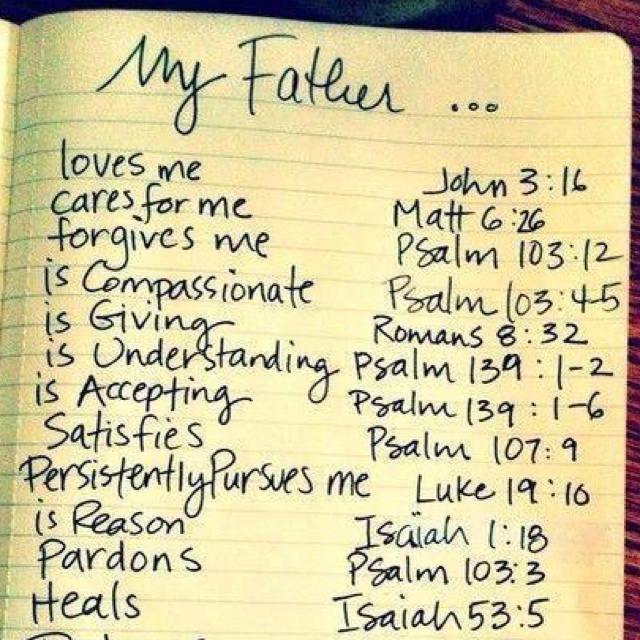 My Father ...
loves me John 3:16
cares for me Matt 6:26
forgives me Psalm 103:12
is Compassionate Psalm 103:45
is Giving Romans 8:32
is Understanding Psalm 139:1-2
is Accepting Psalm 139:1-6
Satisfies Psalm 107:9
Persistently Pursues me Luke 19:10
is Reason Isaiah 1:18
Pardons Psalm 103:3
Heals Isaiah 53:5